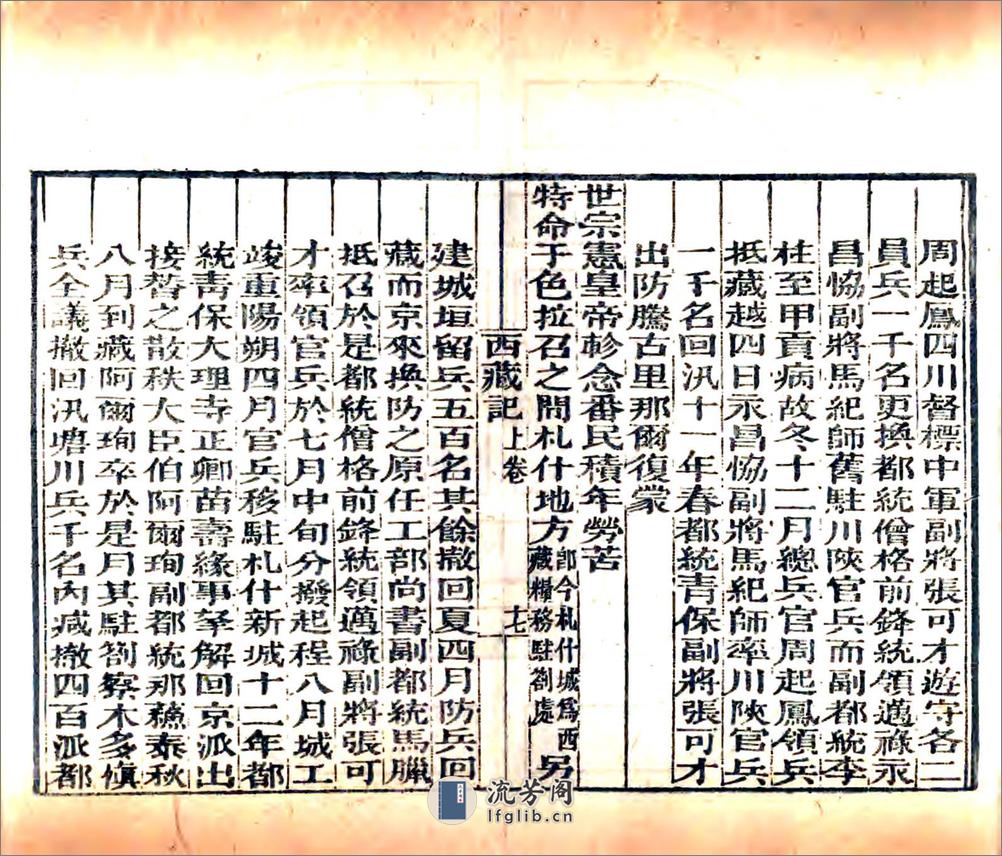 周起鳳四川督標中軍副將張可才遊守各二
員兵一千名更換都統僧格前鋒統領邁祿永
昌恊副將馬紀師舊駐川陝官兵而副都統李
柱至甲貢病故冬十二月總兵官周起鳳領兵
抵藏越四日永昌恊副將馬紀師率川陝官兵
一千名回汛十一年春都統青保副將張可才
出防騰古里那爾復蒙
世宗憲皇帝軫念番民積年勞苦
特命于色拉召之間札什地方即今札什城爲西藏糧務駐劄處另
西藏記 上卷 十七
建城垣留兵五百名其餘撤回夏四月防兵回
藏而京來換防之原任工部尚書副都統馬臘
抵召於是都統僧格前鋒統領邁祿副將張可
才率領官兵於七月中旬分撥起程八月城工
竣重陽朔四月官兵移駐札什新城十二年都
統青保大理寺正卿苗壽緣事拏解回京派出
接替之散秩大臣伯阿爾珣副都統那蘓泰秋
八月到藏阿爾珣卒於是月其駐劄察木多慎
兵全議撤回汛塘川兵千名內减撤四百派都
流芳阁
lfglib.cn